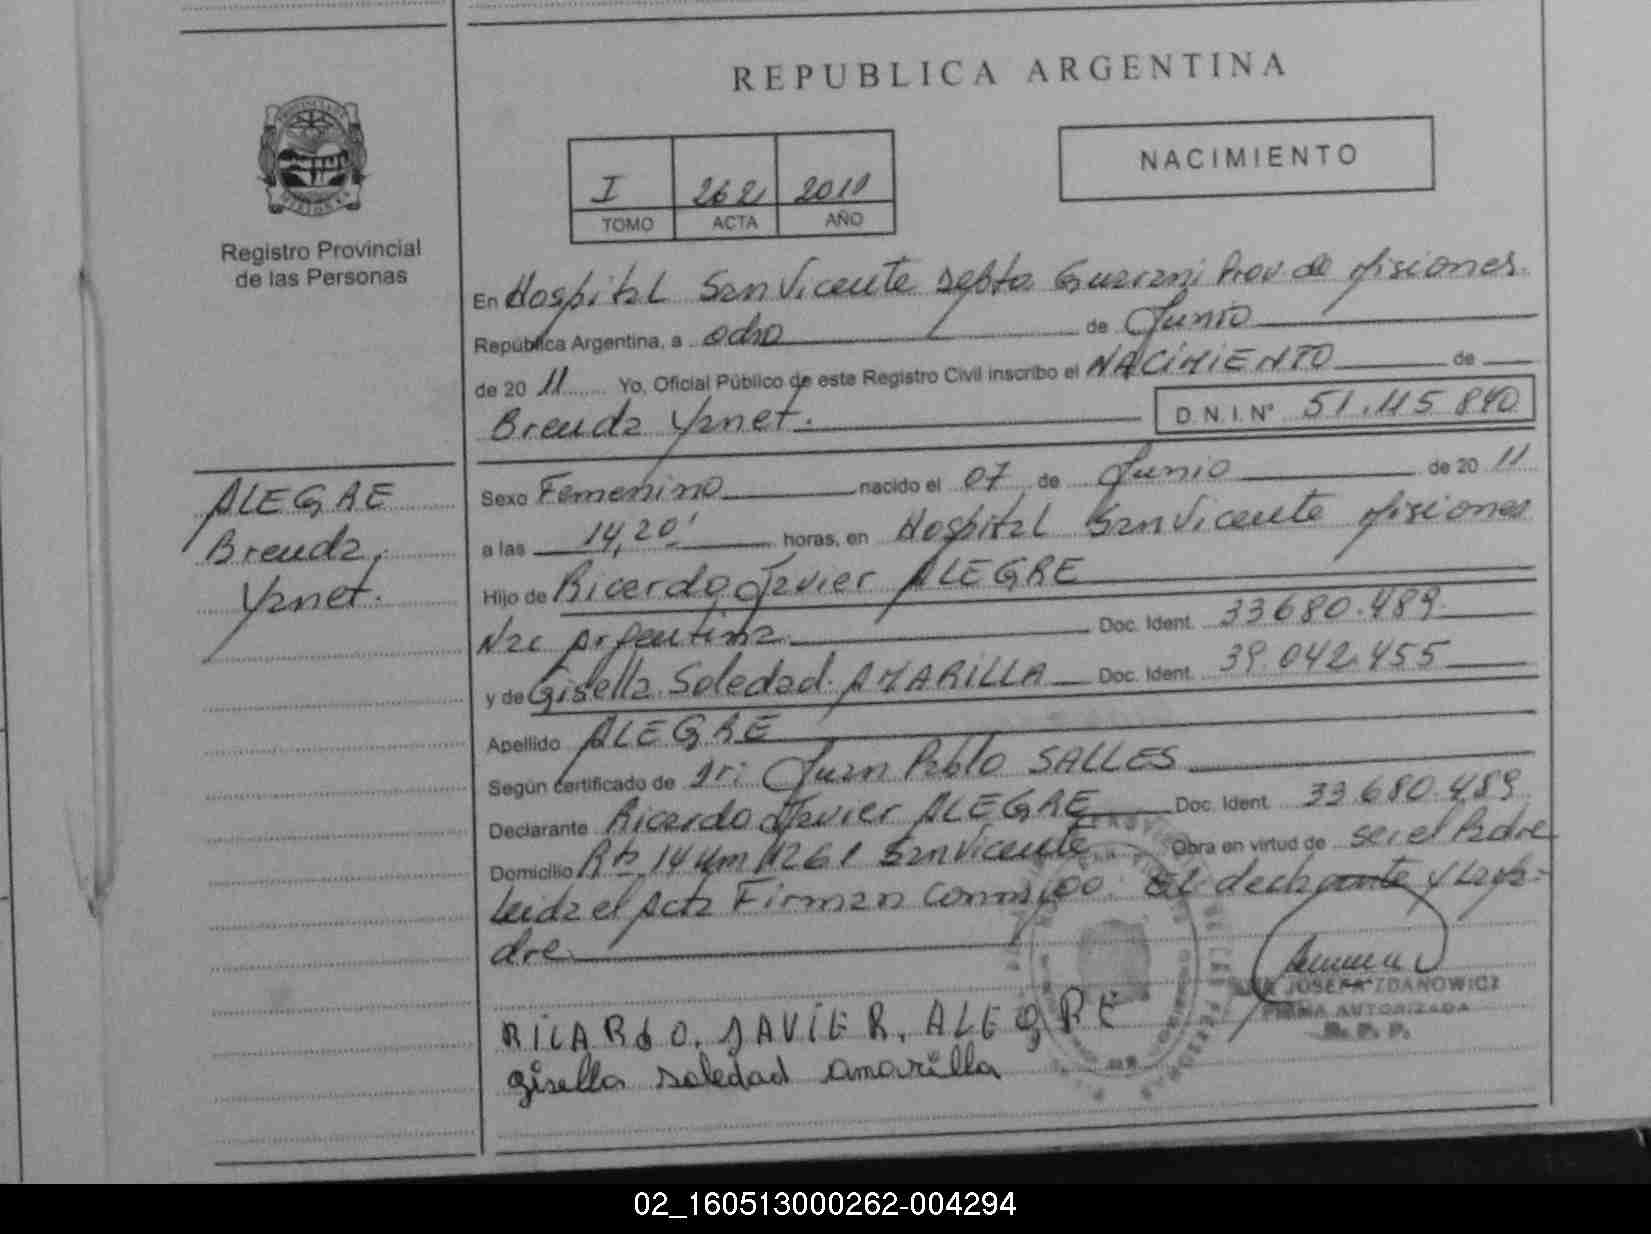 REPUBLICA ARGENTINA
NACIMIENTO
I 262 2011
TOMO ACTA AÑO
Registro Provincial
de las Personas
En Hospital San Vicente Depto Guarani Prov de Misiones.
República Argentina, a ocho de Junio
de 20 11 Yo, Oficial Público de este Registro Civil inscribo el NACIMIENTO de
Brenda Yanet. D.N.I. N° 51.115.840
ALEGRE
Brenda,
Yanet.
Sexo Femenino nacido el 07 de Junio de 20 11
a las 14,20' horas, en Hospital San Vicente Misiones
Hijo de Ricardo Javier ALEGRE
Nac Argentina Doc. Ident. 33680.489.
y de Gisella Soledad. AMARILLA Doc. Ident. 39.042.455
Apellido ALEGRE
Según certificado de Dr: Juan Pablo SALLES
Declarante Ricardo Javier ALEGRE Doc. Ident. 33.680.489
Domicilio Rta 14 Km 1261 San Vicente Obra en virtud de ser el Padre
Leida el Acta Firman conmigo. El declarante y la Ma-
dre
JOSEFA ZDANOWICZ
FIRMA AUTORIZADA
R. P. P.
RICARDO. JAVIER. ALEGRE
gisella soledad amarilla
02_160513000262-004294